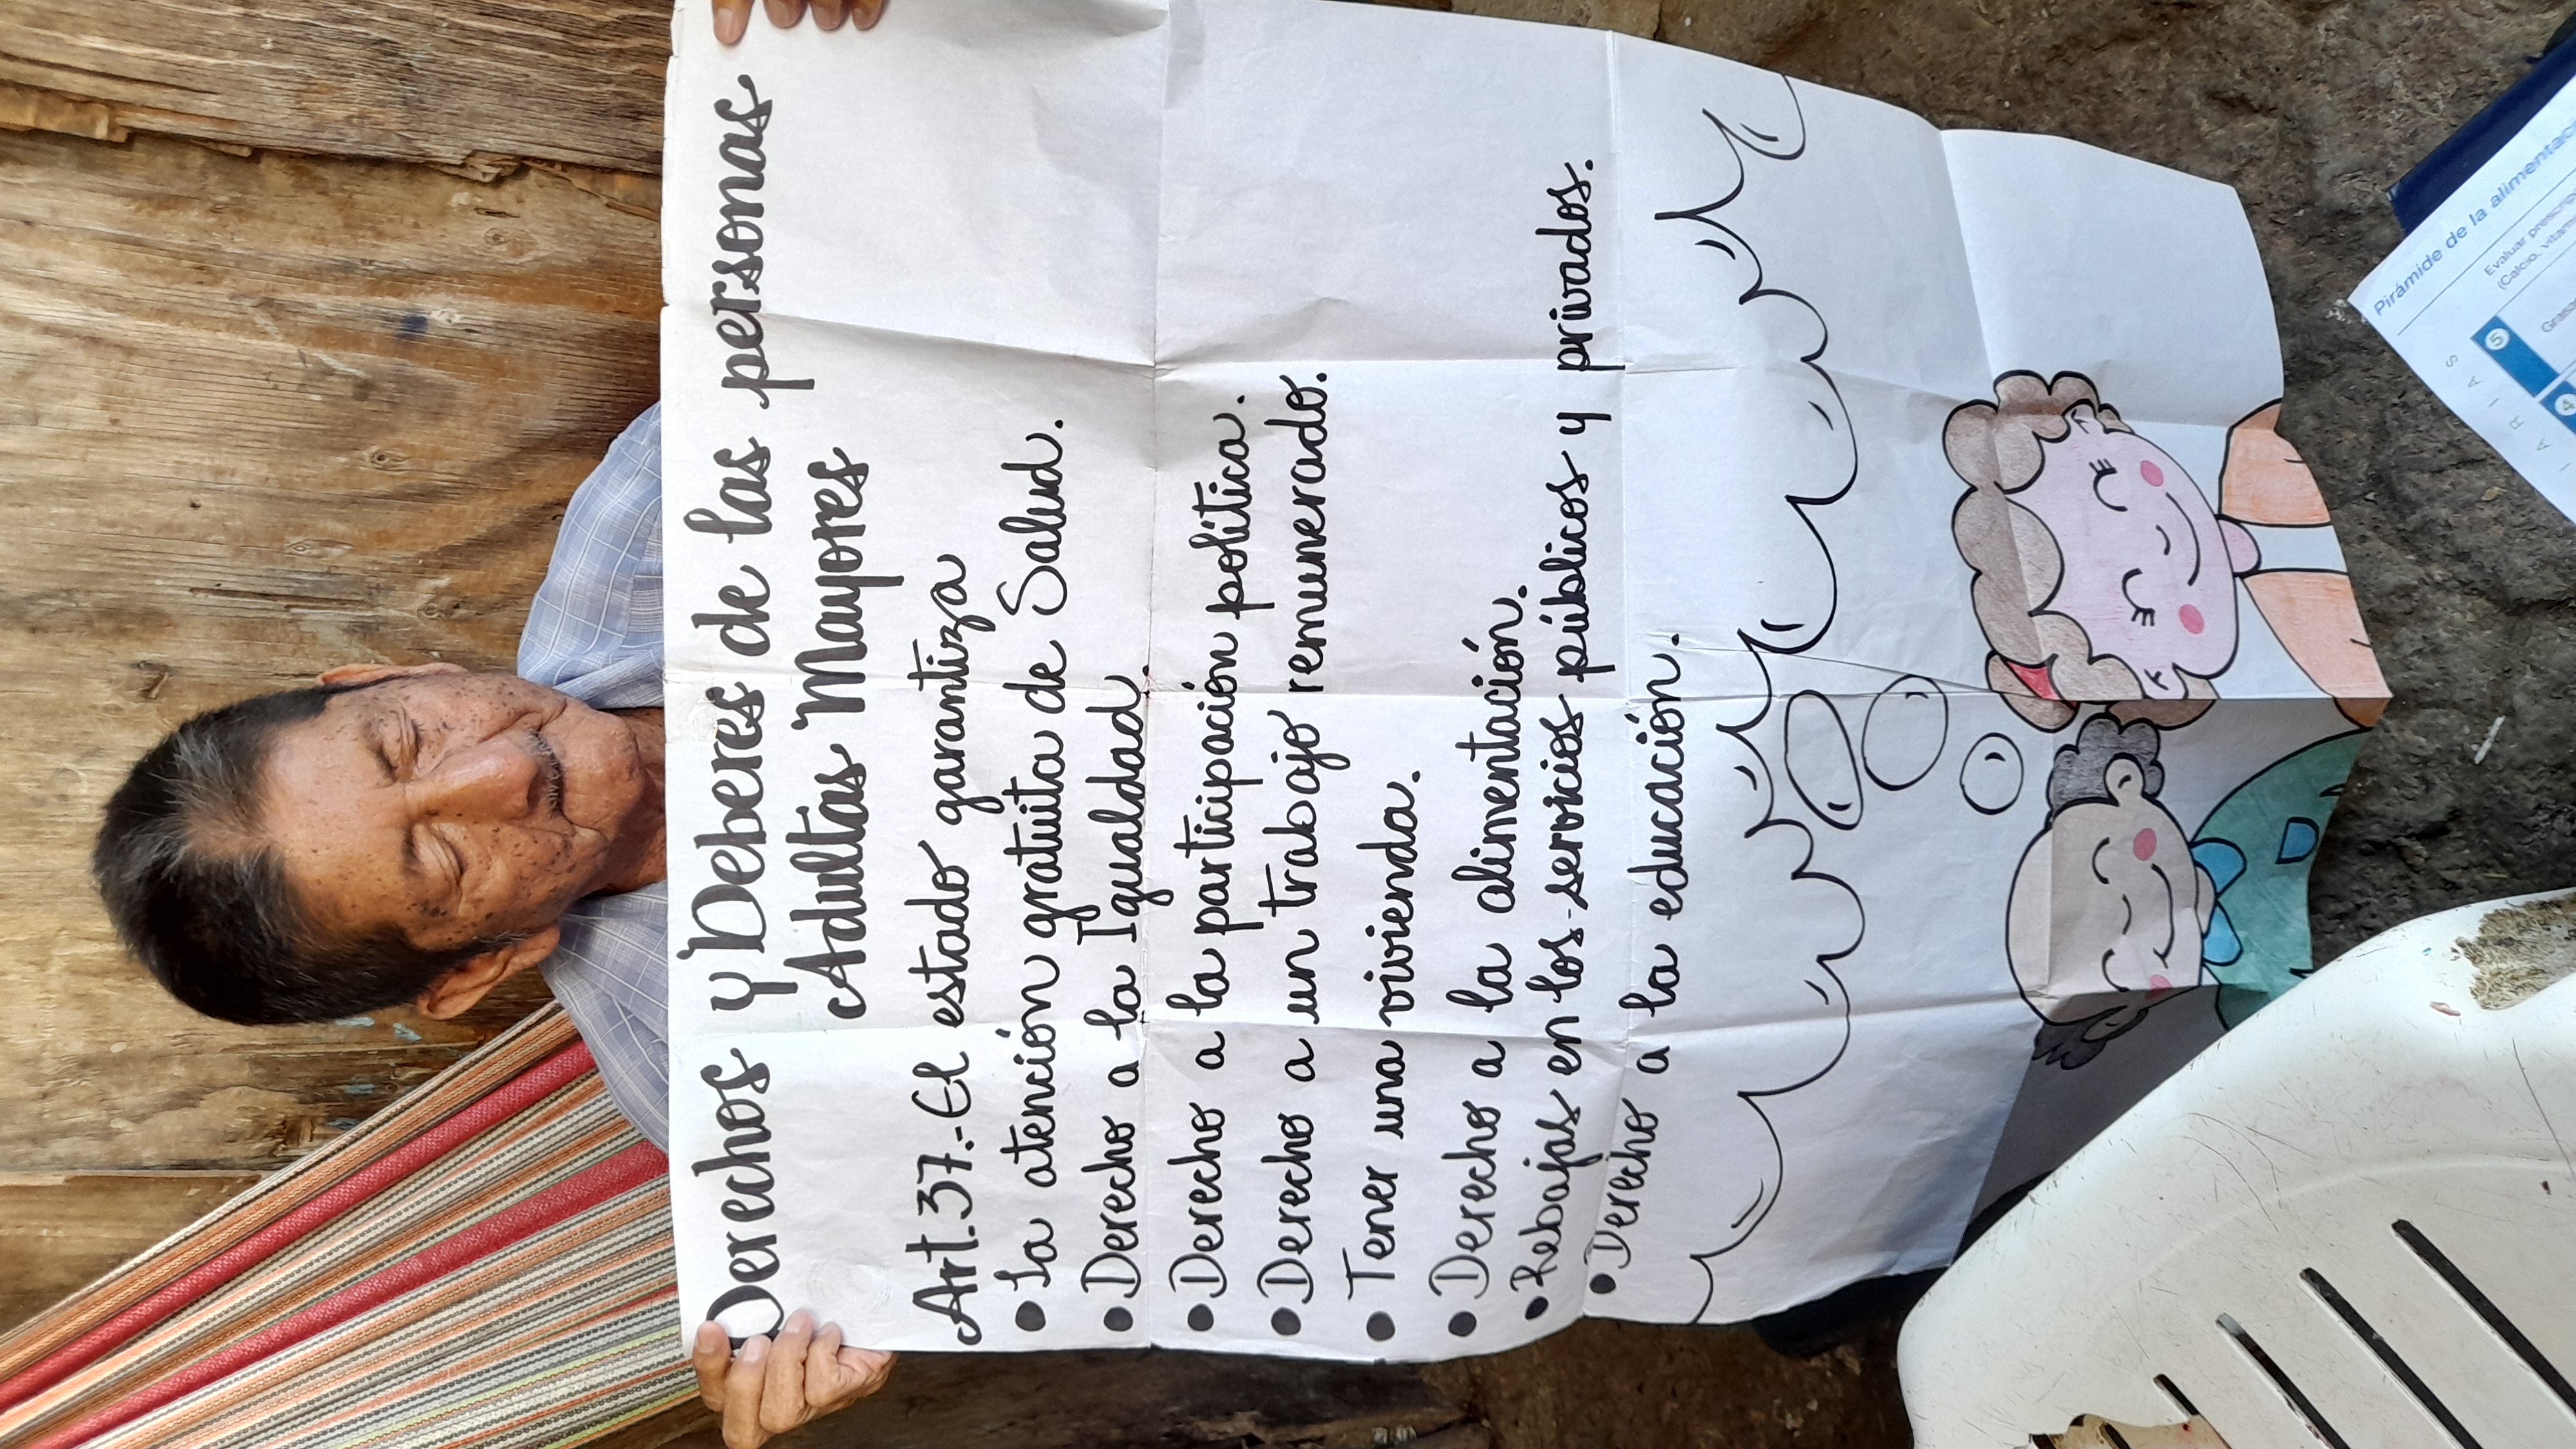 Derechos y Deberes de las personas
Adultas Mayores
Art.37.-El estado garantiza
• La atención gratuita de Salud.
• Derecho a la Igualdad.
• Derecho a la participación política.
• Derecho a un trabajo remunerado.
• Tener una vivienda.
• Derecho a la alimentación.
• Rebajas en los servicios públicos y privados.
• Derecho a la educación.
Pirámide de la alimentac
Evaluar
(Calcio,
5
4